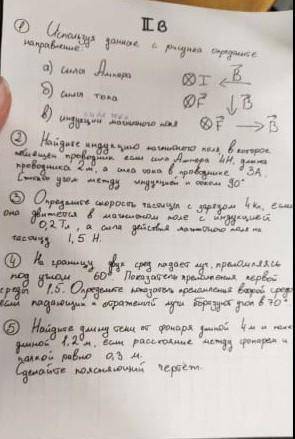 II В
① Используя данные с рисунка определите
направление:
а) сила Ампера ⊗ I ← B
б) сила тока ⊗ F ↓ B
в) индукции магнитного поля ⊗ F → B
② Найдите индукцию магнитного поля, в которое
помещен проводник если сила Ампера 4Н, длина
проводника 2м, а сила тока в проводнике 3А,
угол между индукцией и током 90°
③ Определите скорость частицы с зарядом 4 кл, если
она движется в магнитном поле с индукцией
0,2 Тл, а сила действия магнитного поля на
частицу 1,5 Н.
④ На границу двух сред падает луч, преломляясь
под углом 60° Показатель преломления первой
среды 1.5. Определите показатель преломления второй среды
если падающих и отраженый лучи образуют угол в 70°
⑤ Найдите длину тени от фонаря длиной 4 м и палки
длиной 1.2 м, если расстояние между фонарем и
палкой равно 0,3 м.
Сделайте поясняющий чертёж.